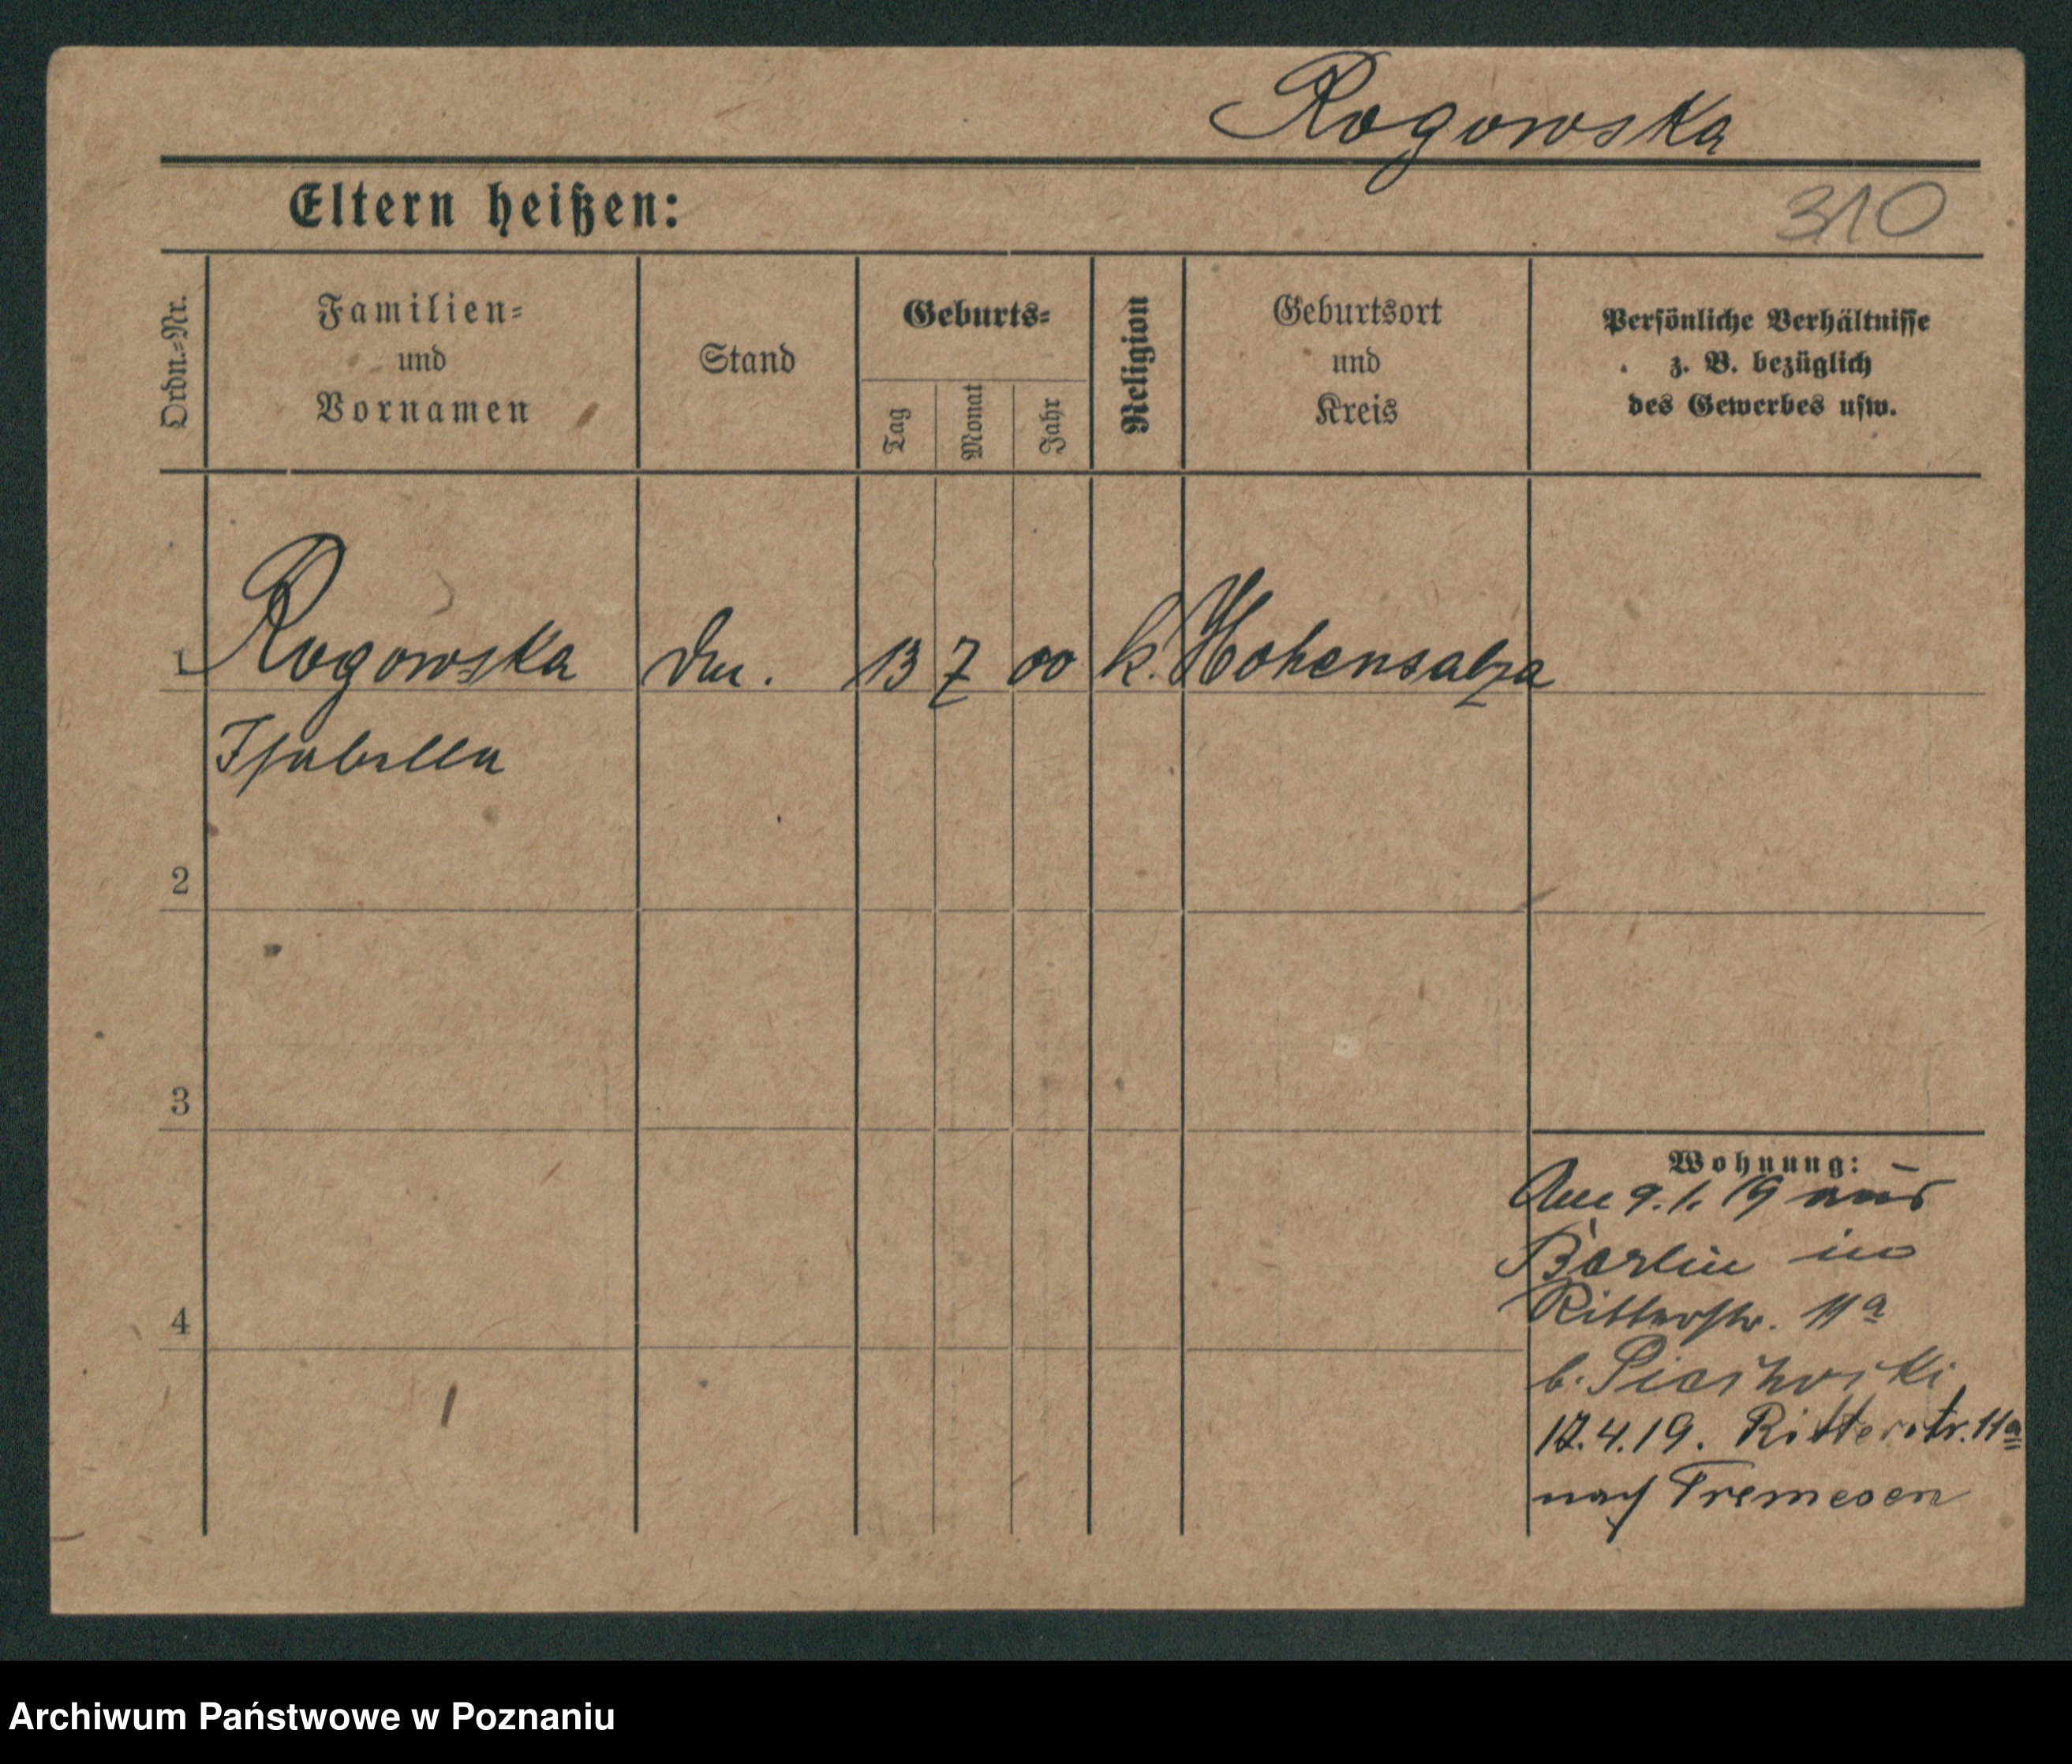 Rogowska
Eltern heißen:
310
Ordn.-Nr.
Familien-
und
Vornamen
Stand
Geburts-
Tag
Monat
Jahr
Religion
Geburtsort
und
Kreis
Persönliche Verhältnisse
z. B. bezüglich
des Gewerbes usw.
1 Rogowska 13 7 00 k. Hohensalza
Isabella
2
3
4
Wohnung:
Am 9.1.19 aus
Berlin in
Ritterstr. 11a
b.
12.4.19. Ritterstr. 11a
nach Tremesen
Archiwum Państwowe w Poznaniu